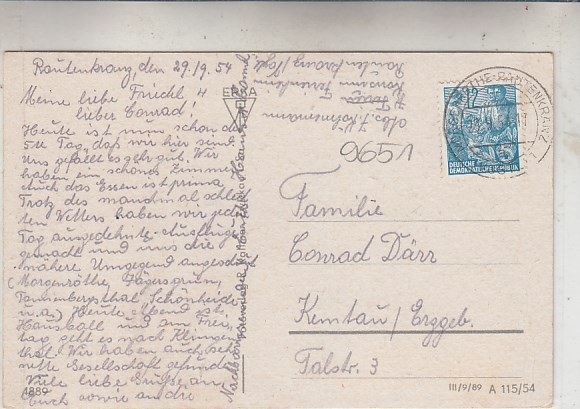 Rautenkranz, den 29.9.54
Meine liebe Friedel u.
lieber Conrad!
Heute ist nun schon der
5te Tag, daß wir hier sind.
Uns gefällt es sehr gut. Wir
haben ein schönes Zimmer
auch das Essen ist prima
Trotz des manchmal schlech-
ten Wetters haben wir jeden
Tag ausgedehnte Ausflüge
gemacht und uns die
nähere Umgegend angeschaut
(Morgenröthe, Jägersgrün,
Tannenbergsthal, Schönheide
u.a.) Heute Abend ist
Hausball und am Frei-
tag geht es nach Klingen-
thal. Wir haben auch sehr
nette Gesellschaft gefunden
Viele liebe Grüße an
Euch sowie an die
1889
ERKA
Abs. J. K.
Rautenkranz/Vogtl.
9651
RAUTENKRANZ
12
DEUTSCHE
DEMOKRATISCHE REPUBLIK
Familie
Conrad Därr
Kemtau/Erzgeb.
Talstr. 3
III/9/89 A 115/54